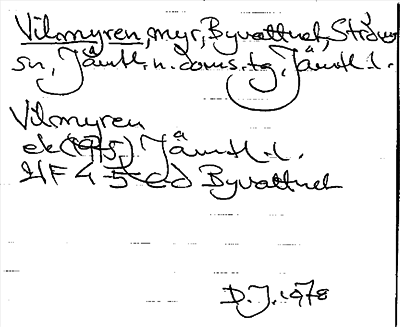 Vilmyren, myr, Byvattnet, Ströms
sn, Jämtl. n. doms. tg, Jämtl. l.
Vilmyren
ek (1975) Jämtl. l.
21F 4-5 c d Byvattnet
D.J. 1978